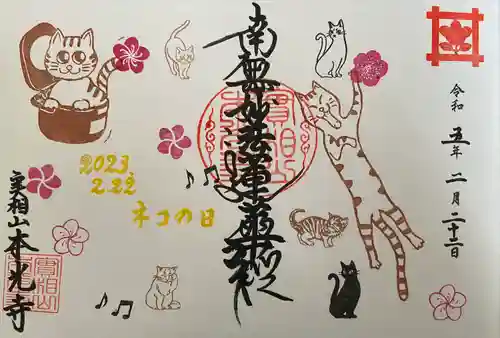 令和五年二月二十二日
南無妙法蓮華経
2023
2.22
ネコの日
実相山本光寺